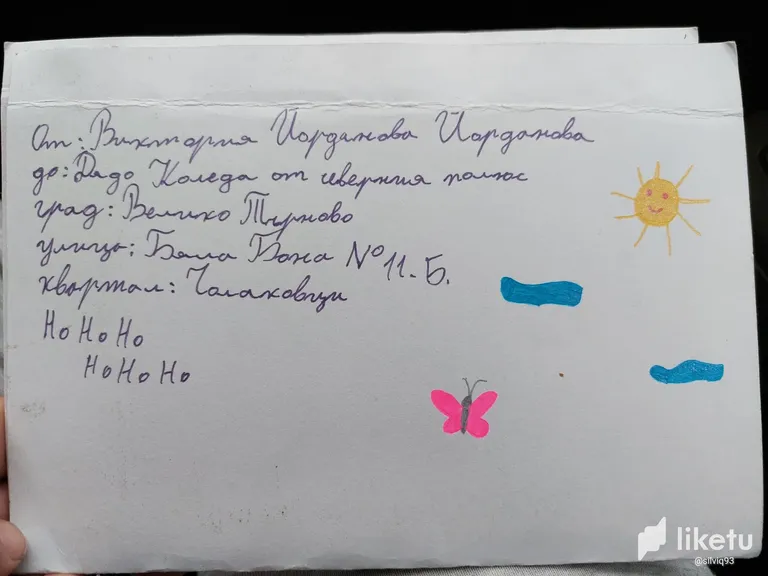 От: Виктория Йорданова Йорданова
до: Дядо Коледа от северния полюс
град: Велико Търново
улица: Бяла Бона № 11-Б.
квартал: Чолаковци
Но Но Но
Но Но Но
liketu
@silviq93